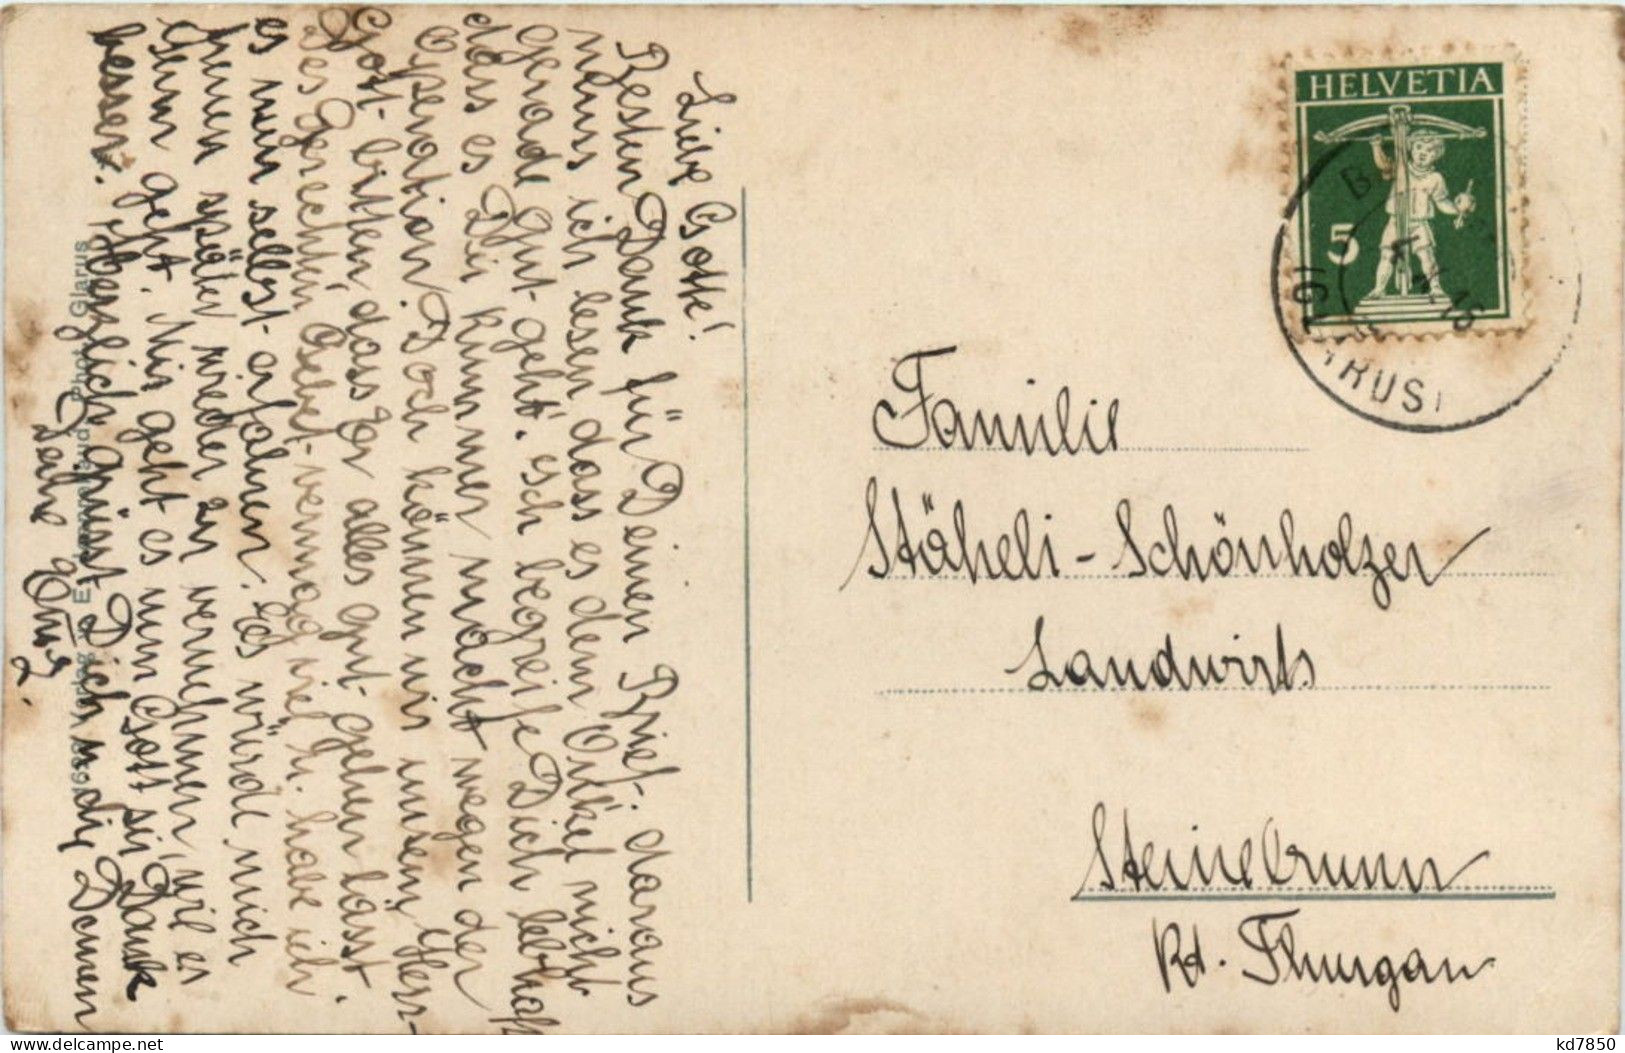 Liebe Gotte!
Besten Dank für Deinen Brief. daraus
muss ich lesen dass es dem Onkel nicht
gerade gut geht. Ich begreife Dich lebhaft
dass es Dir kummer macht wegen der
Operation. Doch können wir unsern Herr-
Gott bitten, dass Er alles gut gehen lässt.
Des Gerechten Gebet vermag viel. Hr. habe ich
es nun selbst erfahren. Es würde mich
freuen später wieder zu vernehmen, wie es
Ihm geht. Mir geht es nun Gott sei Dank
besser. Herzlich grüsst Dich u. die Deinen
Deine
HELVETIA
5
16
TRUSI
Familie
Stäheli-Schönholzer
Landwirts
Steinebrunn
Kt. Thurgau
Phot. Glarus
kd7850